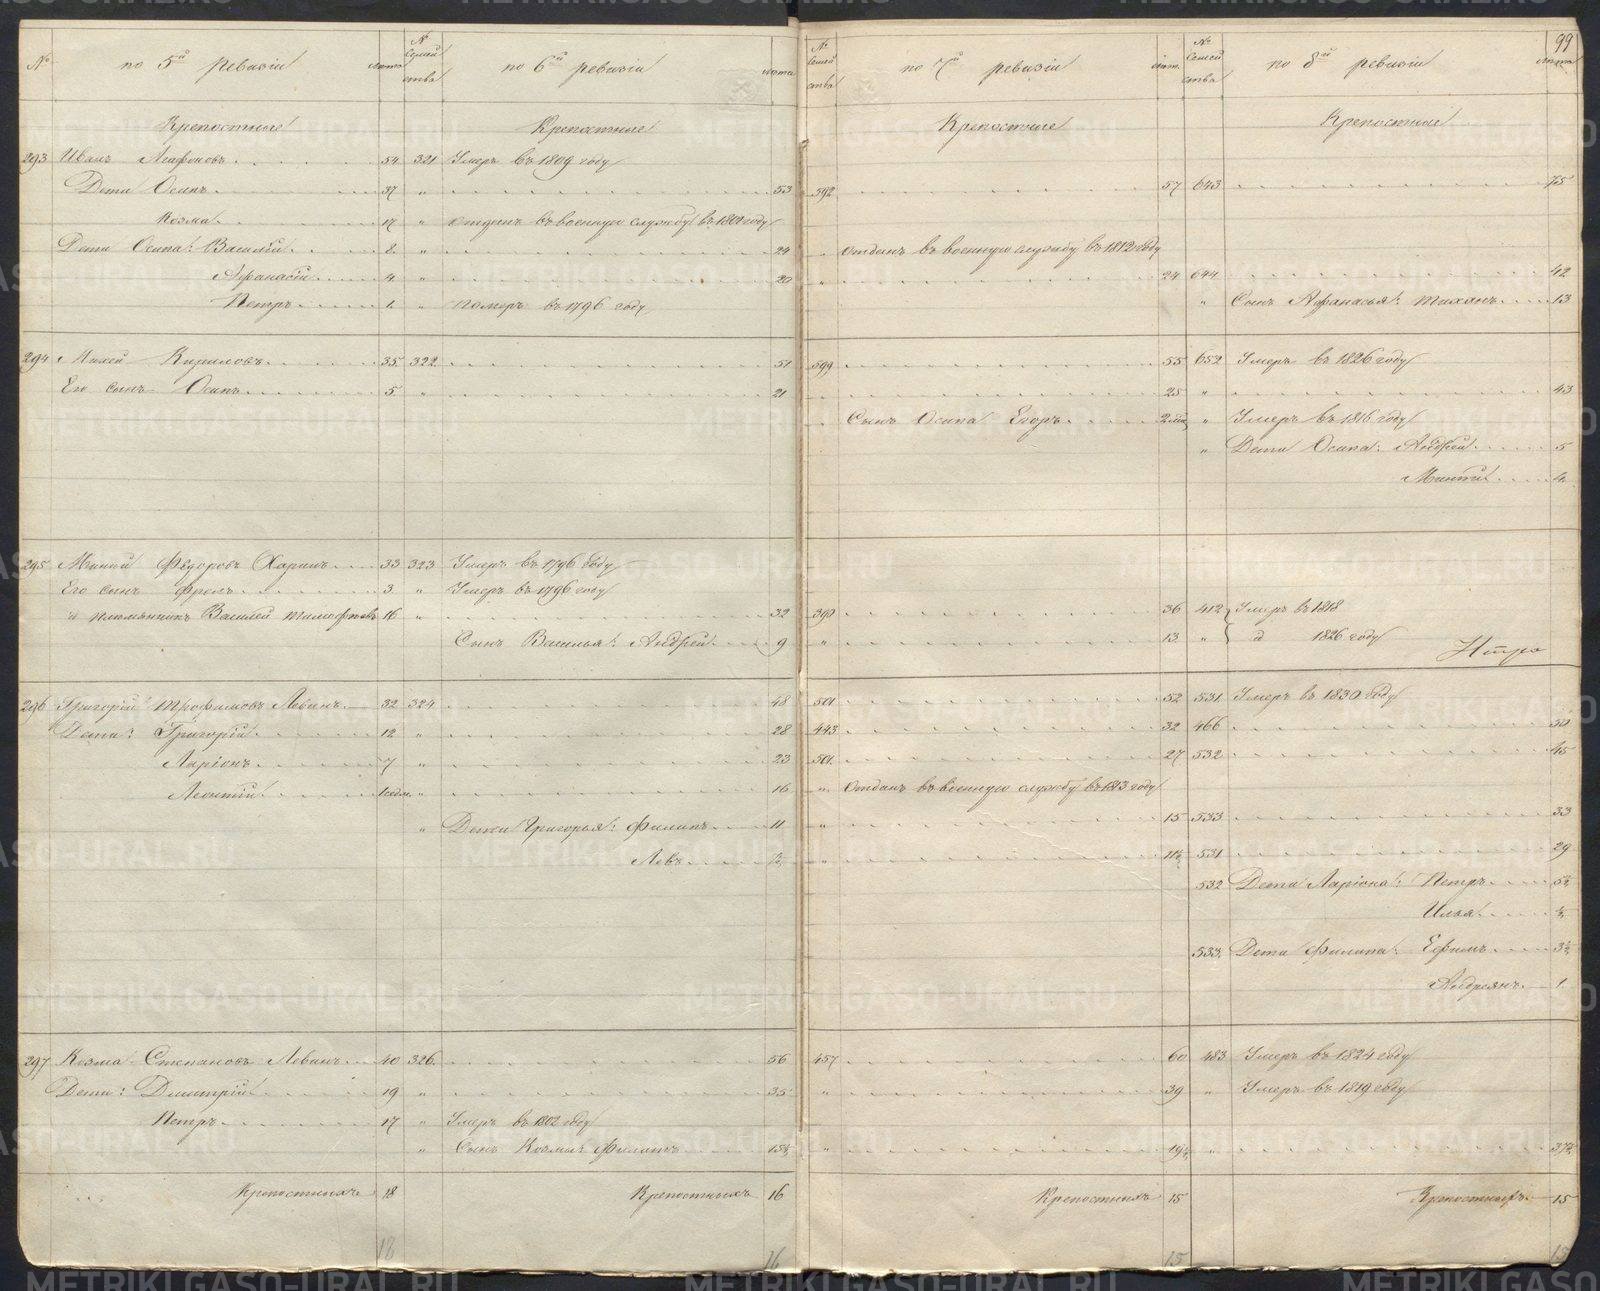 99
№ по 5й ревизіи лета № Семей ства по 6й ревизіи лета № Семей ства по 7й ревизіи лета № Семей ства по 8й ревизіи лета
Крепостные Крепостные Крепостные Крепостные
293 Иванъ Агафоновъ 54 321 Умеръ въ 1809 году
Дети Осипъ 37 " 53 592 57 643 75
Козма 17 " отданъ въ военную службу въ 1801 году
Дети Осипа: Василій 8 " 24 " отданъ въ военную службу въ 1812 году
Афанасій 4 " 20 " 24 644 42
Петръ 1 " померъ въ 1796 году " Сынъ Афанасья: Тиханъ 13
294 Михей Кириловъ 35 322 51 599 55 652 Умеръ въ 1826 году
Его сынъ Осипъ 5 " 21 " 25 " 43
" Сынъ Осипа Егоръ " Умеръ въ 1816 году
" Дети Осипа: Андрей 5
4
295 Миней Федоровъ Харинъ 33 323 Умеръ въ 1796 году
Его сынъ Фролъ 3 " Умеръ въ 1796 году
" племянникъ Василей Тимофеевъ 16 " 32 390 36 412 Умеръ въ 1818
Сынъ Василья: Андрей 9 " 13 " и 1826 году
296 Григорій Трофимовъ Левинъ 32 324 48 501 52 531 Умеръ въ 1830 году
Дети: Григорій 12 " 28 443 32 466 50
Ларіонъ 7 " 23 501 27 532 45
Леонтій 1 нед. " 16 " Отданъ въ военную службу въ 1813 году
" Дети Григорья: Филипъ 11 " 15 533 33
Левъ " 11½ 531 29
532 Дети Ларіона: Петръ 5½
Илья ½
533 Дети Филипа: Ефимъ 3½
Андреянъ 1
297 Козма Степановъ Левинъ 40 326 56 457 60 483 Умеръ въ 1824 году
Дети: Дмитрій 19 " 35 " 39 " Умеръ въ 1819 году
Петръ 17 " Умеръ въ 1802 году
" Сынъ Козмы: Филипъ 15½ " 19½ " 37½
Крепостныхъ 18 Крепостныхъ 16 Крепостныхъ 15 Крепостныхъ 15
18 16 15 15
METRIKI.GASO-URAL.RU